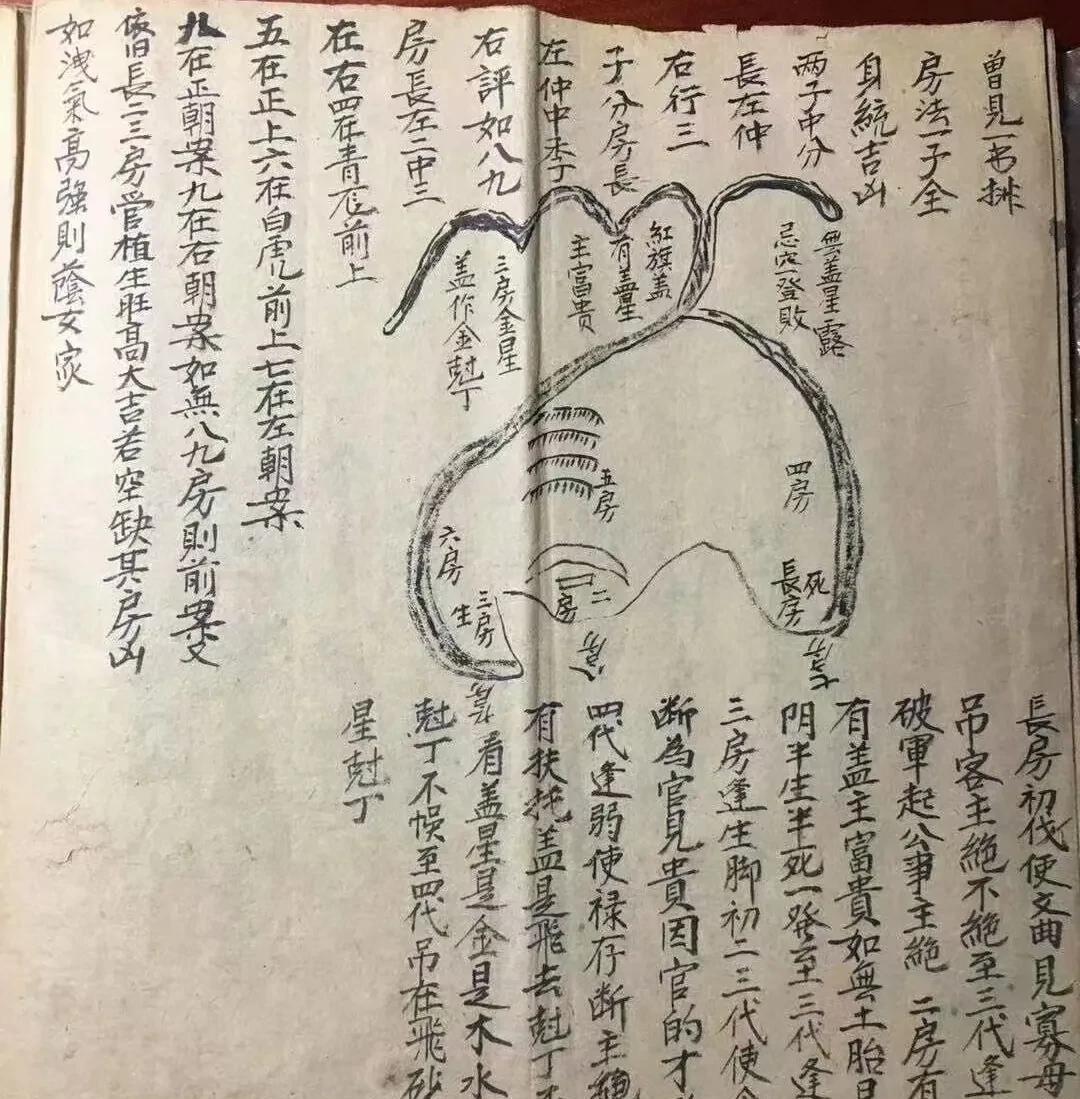 曽見一书排
房法一子全
身統吉凶
两子中分
長左仲
右行三
子分房長
左仲中季
右評如八九
房長左二中三
在右四在青龙前上
五在正上六在白虎前上七在左朝案
八在正朝案九在右朝案如無八九房則前案又
依旧長二三房管植生旺高大吉若空缺其房凶
如洩氣高強則蔭女家
無盖星露
忌空一登敗
紅旗盖
有盖星
主富貴
三房金星
盖作金尅丁
四房
五房
六房
死
長房
二
房
三房
生
七房
八房
九房
長房初伐便文曲見寡母
吊客主絶不絶至三代逢
破軍起公事主絶 二房有
有盖主富貴如無土胎
阴半生半死一發至三代逢
三房逢生脚初二三代使
断為官見貴因官的才
四代逢弱使禄存断主絶
有扶扥盖是飛去尅丁
看盖星是金是木水
尅丁不惧至四代吊在飛砂
星尅丁